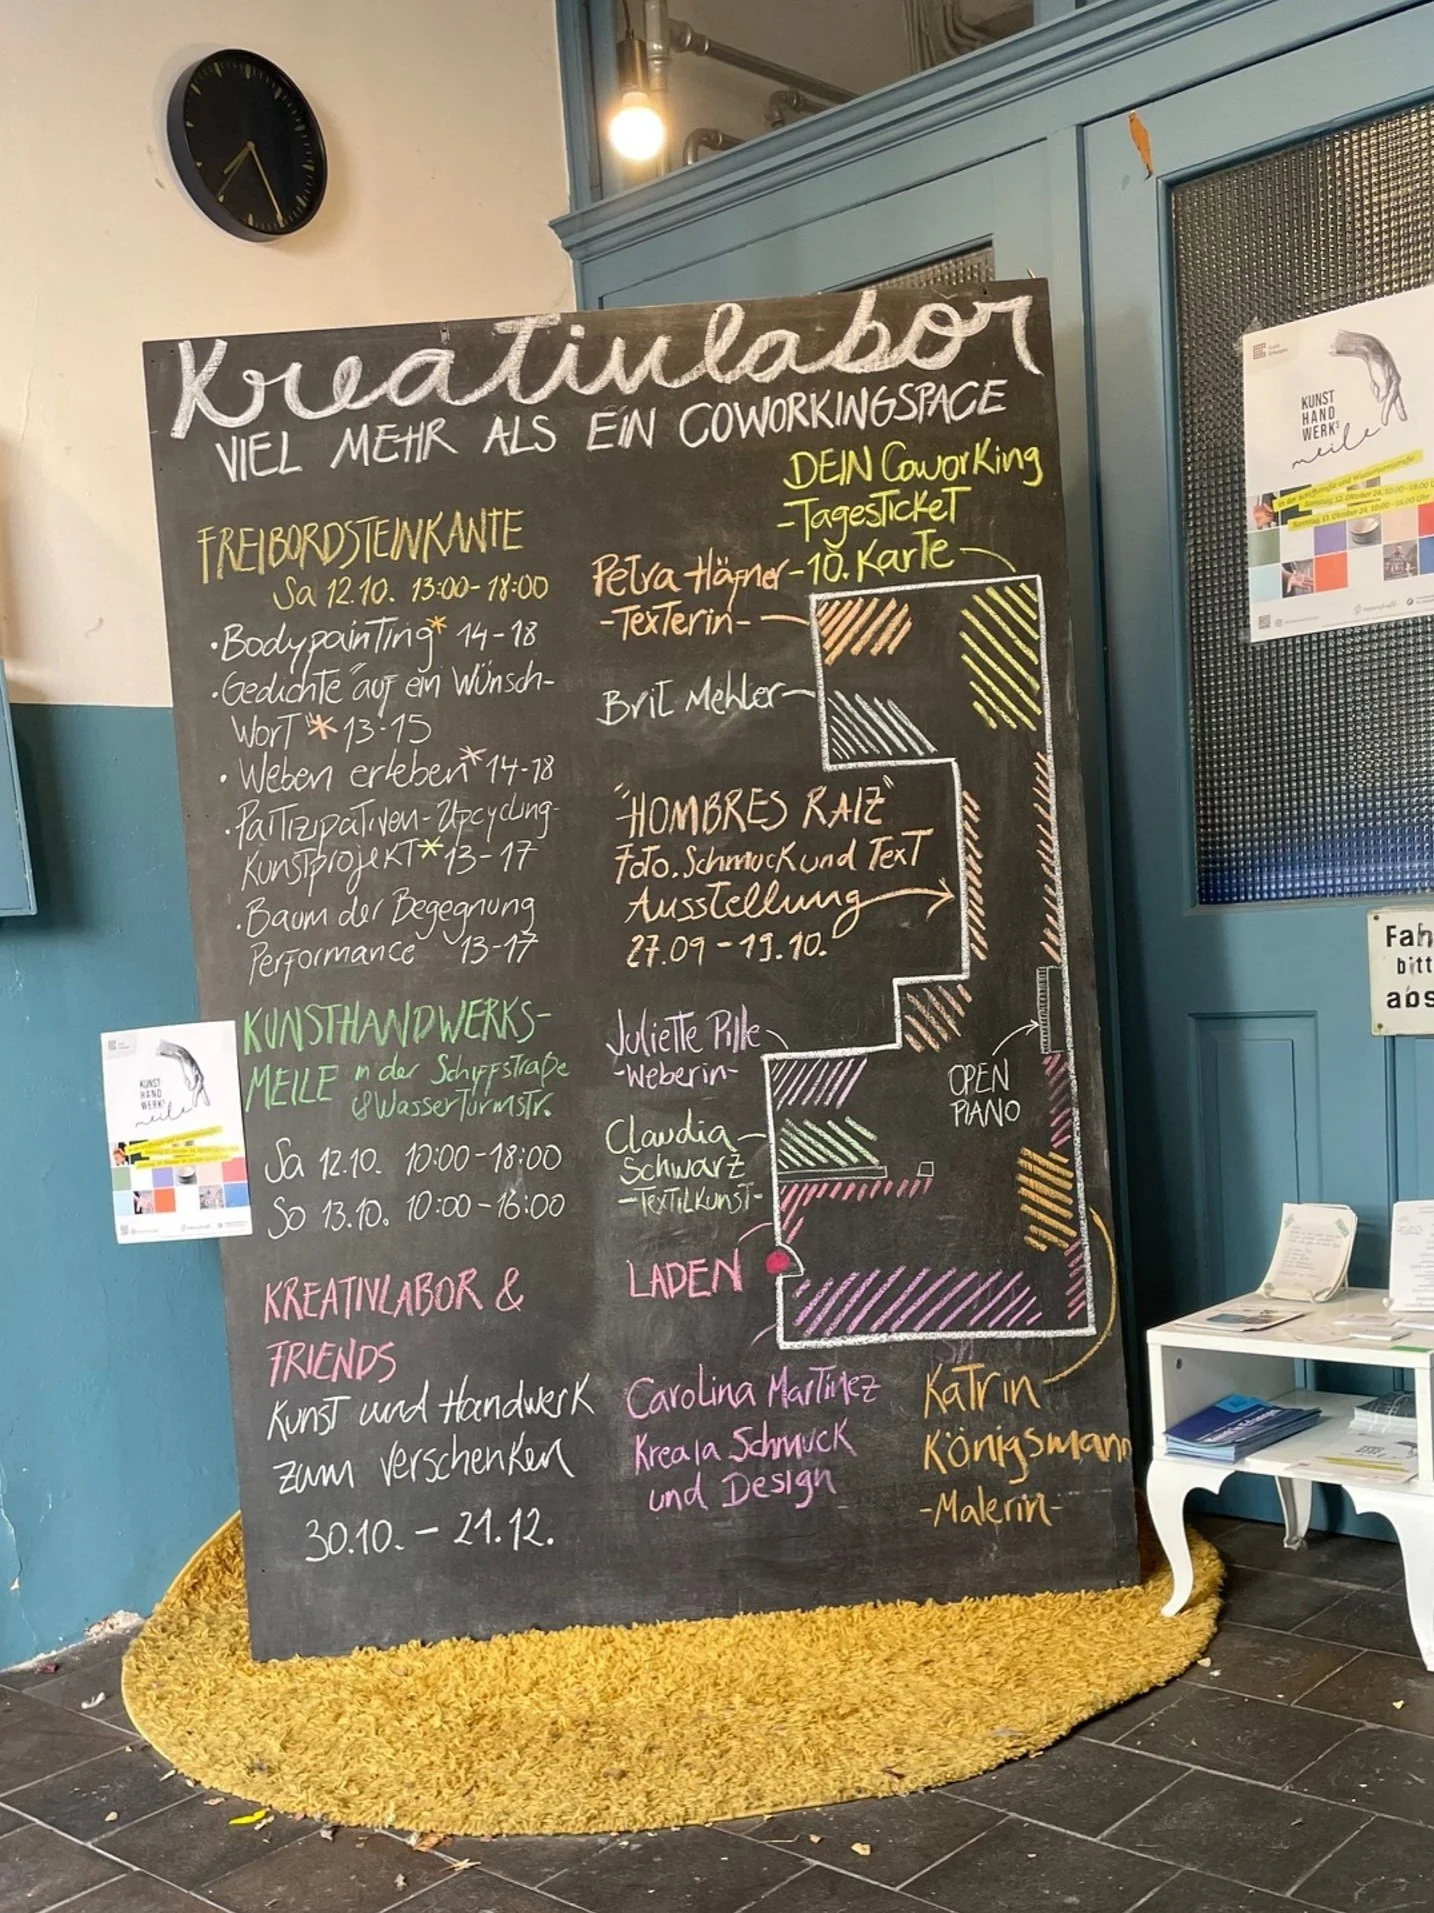 Kreativlabor
VIEL MEHR ALS EIN COWORKINGSPACE
FREIBORDSTEINKANTE
Sa 12.10. 13:00-18:00
• Bodypainting* 14-18
• Gedichte "auf ein Wunsch-
Wort"* 13-15
• Weben erleben* 14-18
• Partizipativen-Upcycling-
Kunstprojekt* 13-17
• Baum der Begegnung
Performance 13-17
KUNSTHANDWERKS-
MEILE in der Schiffstraße
& Wasserturmstr.
Sa 12.10. 10:00-18:00
So 13.10. 10:00-16:00
KREATIVLABOR &
FRIENDS
Kunst und Handwerk
zum verschenken
30.10. - 21.12.
DEIN Coworking
-Tagesticket
-10. Karte
Petra Häfner
-Texterin-
Brit Mehler
"HOMBRES RAIZ"
Foto. Schmuck und Text
Ausstellung
27.09 - 19.10.
Juliette Pille
-Weberin-
OPEN
PIANO
Claudia
Schwarz
-Textilkunst-
LADEN
Carolina Martinez
Kreaja Schmuck
und Design
Katrin
Königsmann
-Malerin-
KUNST
HAND
WERKS
meile
In der Schiffstraße und Wasserturmstraße
Samstag, 12. Oktober 24, 10:00-18:00 U
Sonntag, 13. Oktober 24, 10:00-16:00 Uhr
KUNST
HAND
WERKS
meile
Fah
bitt
abs